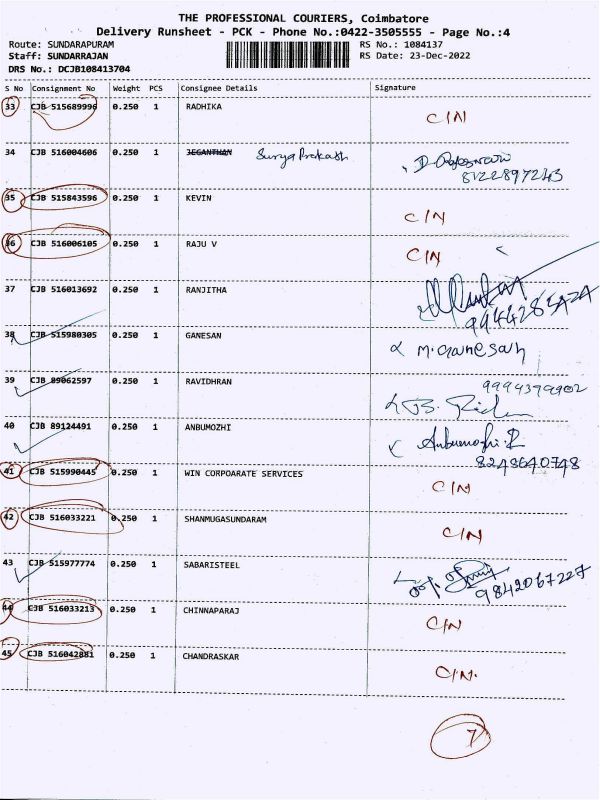 THE PROFESSIONAL COURIERS, Coimbatore
Delivery Runsheet - PCK - Phone No.:0422-3505555 - Page No.:4
Route: SUNDARAPURAM RS No.: 1084137
Staff: SUNDARRAJAN RS Date: 23-Dec-2022
DRS No.: DCJB108413704
S No Consignment No Weight PCS Consignee Details Signature
33 CJB 515689996 0.250 1 RADHIKA C/N
34 CJB 516004606 0.250 1 JEGANTHAN Surya Prakash
8122897243
35 CJB 515843596 0.250 1 KEVIN C/N
36 CJB 516006105 0.250 1 RAJU V C/N
37 CJB 516013692 0.250 1 RANJITHA
38 CJB 515980305 0.250 1 GANESAN M. Ganesan
39 CJB 89062597 0.250 1 RAVIDHRAN 9994399902
40 CJB 89124491 0.250 1 ANBUMOZHI Anbumozhi.R
8248640748
41 CJB 515990445 0.250 1 WIN CORPOARATE SERVICES C/N
42 CJB 516033221 0.250 1 SHANMUGASUNDARAM C/N
43 CJB 515977774 0.250 1 SABARISTEEL
9842067227
44 CJB 516033213 0.250 1 CHINNAPARAJ C/N
45 CJB 516042881 0.250 1 CHANDRASKAR C/N.
7